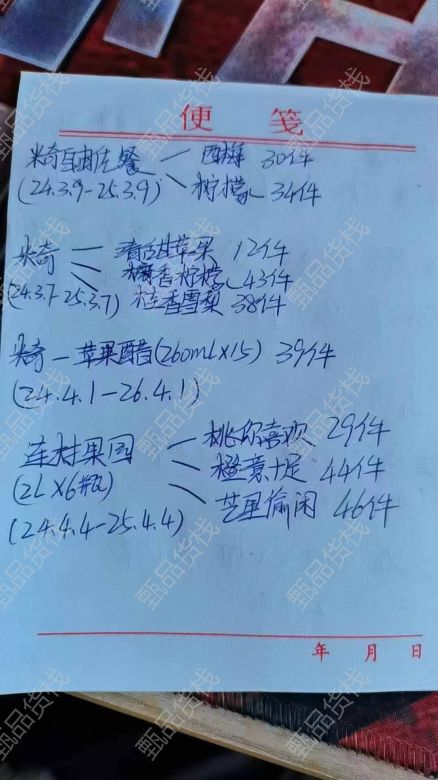 便 笺
米奇自由佐餐 — 西梅 30件
(24.3.9-25.3.9) 柠檬 34件
米奇 — 清甜苹果 12件
香柠檬 43件
(24.3.7-25.3.7) 桂香雪梨 38件
米奇 — 苹果醋(260ml×15) 39件
(24.4.1-26.4.1)
连村果园 — 桃你喜欢 29件
(2L×6瓶) 橙意十足 44件
(24.4.4-25.4.4) 芒里偷闲 46件
年 月 日
甄品货栈